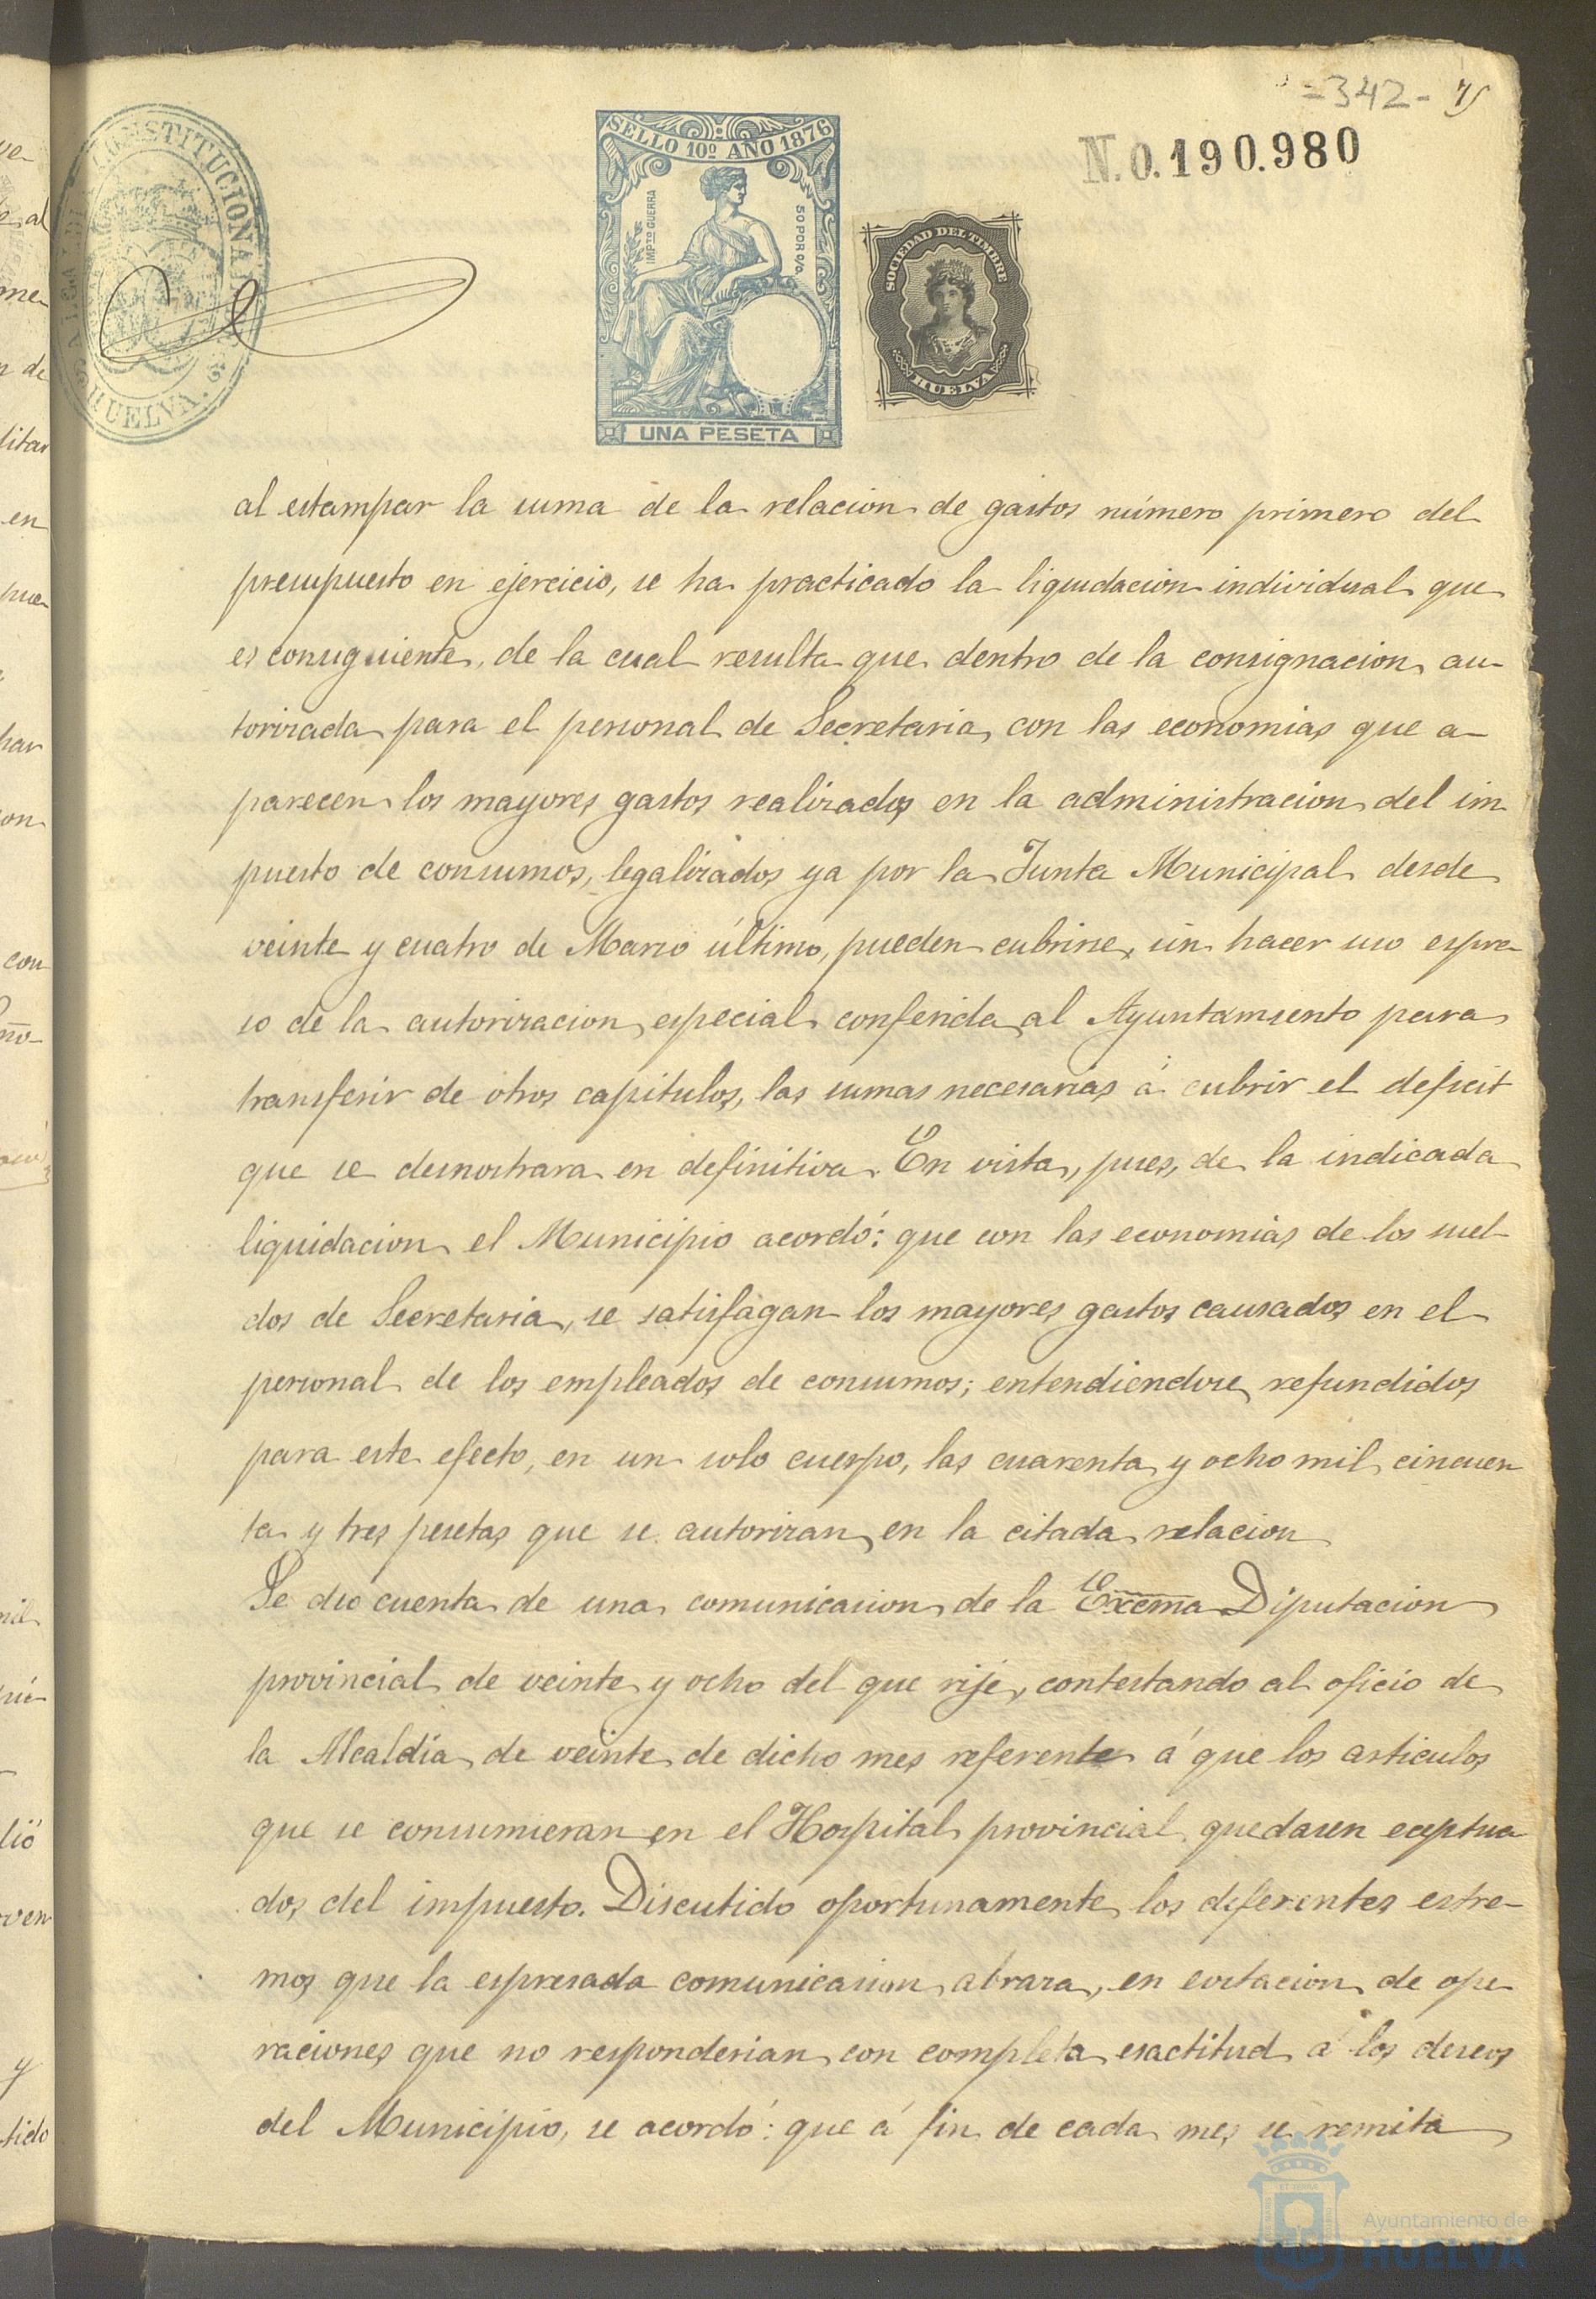 =342- 75
N.0.190.980
ALCALDIA CONSTITUCIONAL
HUELVA.
SELLO 10º AÑO 1876
IMPTO GUERRA
50 POR 0/0
UNA PESETA
SOCIEDAD DEL TIMBRE
HUELVA
al estampar la suma de la relacion de gastos número primero del
presupuesto en ejercicio, se ha practicado la liquidacion individual que
es consiguiente, de la cual resulta que dentro de la consignacion au-
torizada para el personal de Secretaria, con las economias que a-
parecen los mayores gastos realizados en la administracion del im
puesto de consumos, legalizados ya por la Junta Municipal desde
veinte y cuatro de Marzo último, pueden cubrirse, sin hacer uso espre
so de la autorizacion especial conferida al Ayuntamiento para
transferir de otros capitulos, las sumas necesarias á cubrir el deficit
que se demostrara en definitiva. En vista, pues, de la indicada
liquidacion el Municipio acordó: que con las economias de los suel-
dos de Secretaria, se satisfagan los mayores gastos causados en el
personal de los empleados de consumos; entendiendose refundidos
para este efecto, en un solo cuerpo, las cuarenta y ocho mil cincuen
ta y tres pesetas que se autorizan en la citada relacion
Se dio cuenta de una comunicacion de la Excma Diputacion
provincial de veinte y ocho del que rije, contestando al oficio de
la Alcaldia de veinte de dicho mes referente á que los articulos
que se consumieran en el Hospital provincial quedasen eceptua
dos del impuesto. Discutido oportunamente los diferentes estre-
mos que la espresada comunicacion abraza, en evitacion de ope
raciones que no responderian con completa esactitud á los deseos
del Municipio, se acordó: que á fin de cada mes se remita
Ayuntamiento de
HUELVA